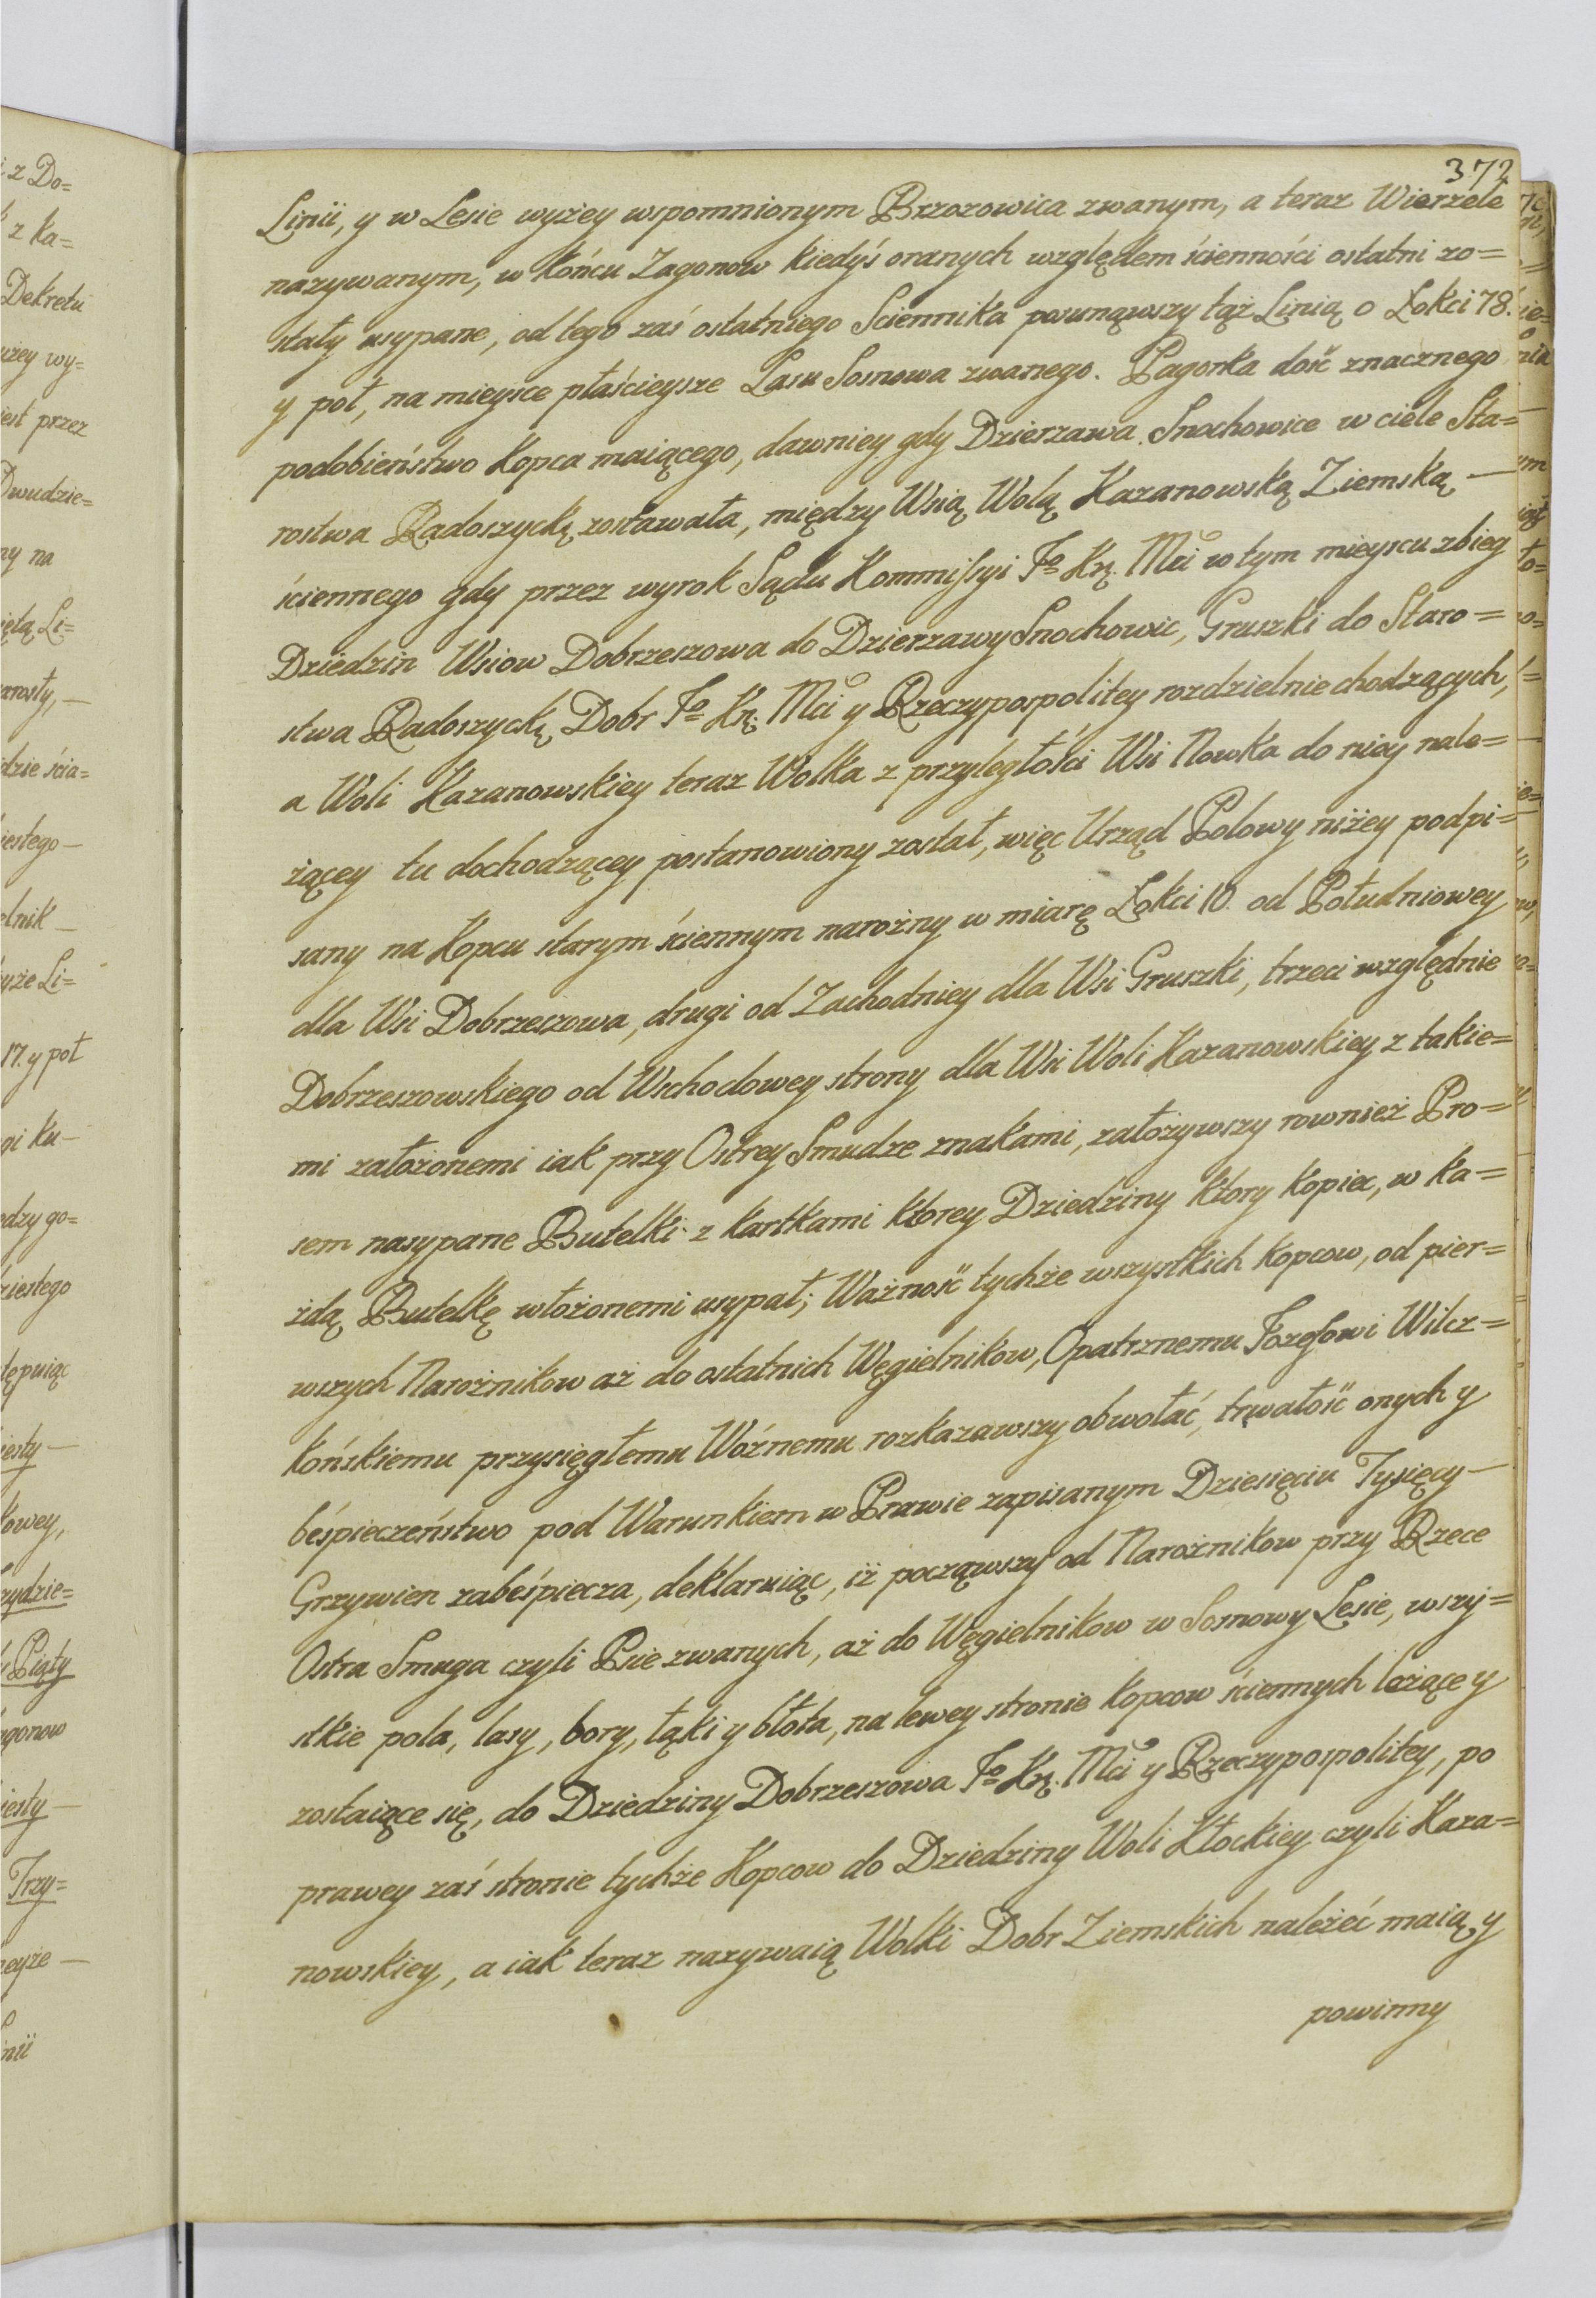 372
Linii, y w Lesie wyżey wspomnionym Brzozowica zwanym, a teraz Wierzele
nazywanym, w końcu Zagonow kiedyś oranych względem ścienności ostatni zo=
stały usypane, od tego zaś ostatniego Sciennika posunąwszy tąż Linią o Łokci 78.
y poł, na mieysce płaścieysze Lasu Sosnowa zwanego. Pagorka dość znacznego
podobieństwo Kopca maiącego, dawniey gdy Dzierzawa Snochowice w ciele Sta=
rostwa Radoszyckę zostawała, między Wsią Wolą Kazanowską Ziemską —
ściennego gdy przez wyrok Sądu Kommissyi Jo Kę. Mci w tym mieyscu zbieg
Dziedzin Wsiow Dobrzeszowa do Dzierzawy Snochowic, Gruszki do Staro=
stwa Radoszyckę Dobr Jo Kę. Mci y Rzeczypospolitey rozdzielnie chodzących,
a Woli Kazanowskiey teraz Wolka z przyległości Wsi Nowka do niey nale=
żącey tu dochodzącey postanowiony został, więc Urząd Polowy niżey podpi=
sany na Kopcu starym ściennym narożny w miarę Łokci 10. od Południowey
dla Wsi Dobrzeszowa, drugi od Zachodniey dla Wsi Gruszki, trzeci względnie
Dobrzeszowskiego od Wschodowey strony dla Wsi Woli Kazanowskiey z takie=
mi założonemi iak przy Ostrey Smudze znakami, założywszy rownież Pro=
sem nasypane Butelki z kartkami ktorey Dziedziny ktory kopiec, w ka=
żdą Butelkę włożonemi usypał; Ważność tychże wszystkich kopcow, od pier=
wszych Narożnikow aż do ostatnich Węgielnikow, Opatrznemu Jozefowi Wilcz=
końskiemu przysięgłemu Woźnemu rozkazawszy obwołać, trwałość onych y
beśpieczeństwo pod Warunkiem w Prawie zapisanym Dziesięciu Tysięcy —
Grzywien zabeśpiecza, deklaruiąc, iż począwszy od Narożnikow przy Rzece
Ostra Smuga czyli Psie zwanych, aż do Węgielnikow w Sosnowy Lesie, wszy=
stkie pola, lasy, bory, łąki y błota, na lewey stronie kopcow ściennych leżące y
zostaiące się, do Dziedziny Dobrzeszowa Jo Kę. Mci y Rzeczypospolitey, po
prawey zaś stronie tychże Kopcow do Dziedziny Woli Kłockiey czyli Kaza=
nowskiey, a iak teraz nazywaią Wolki Dobr Ziemskich należeć maią y
powinny